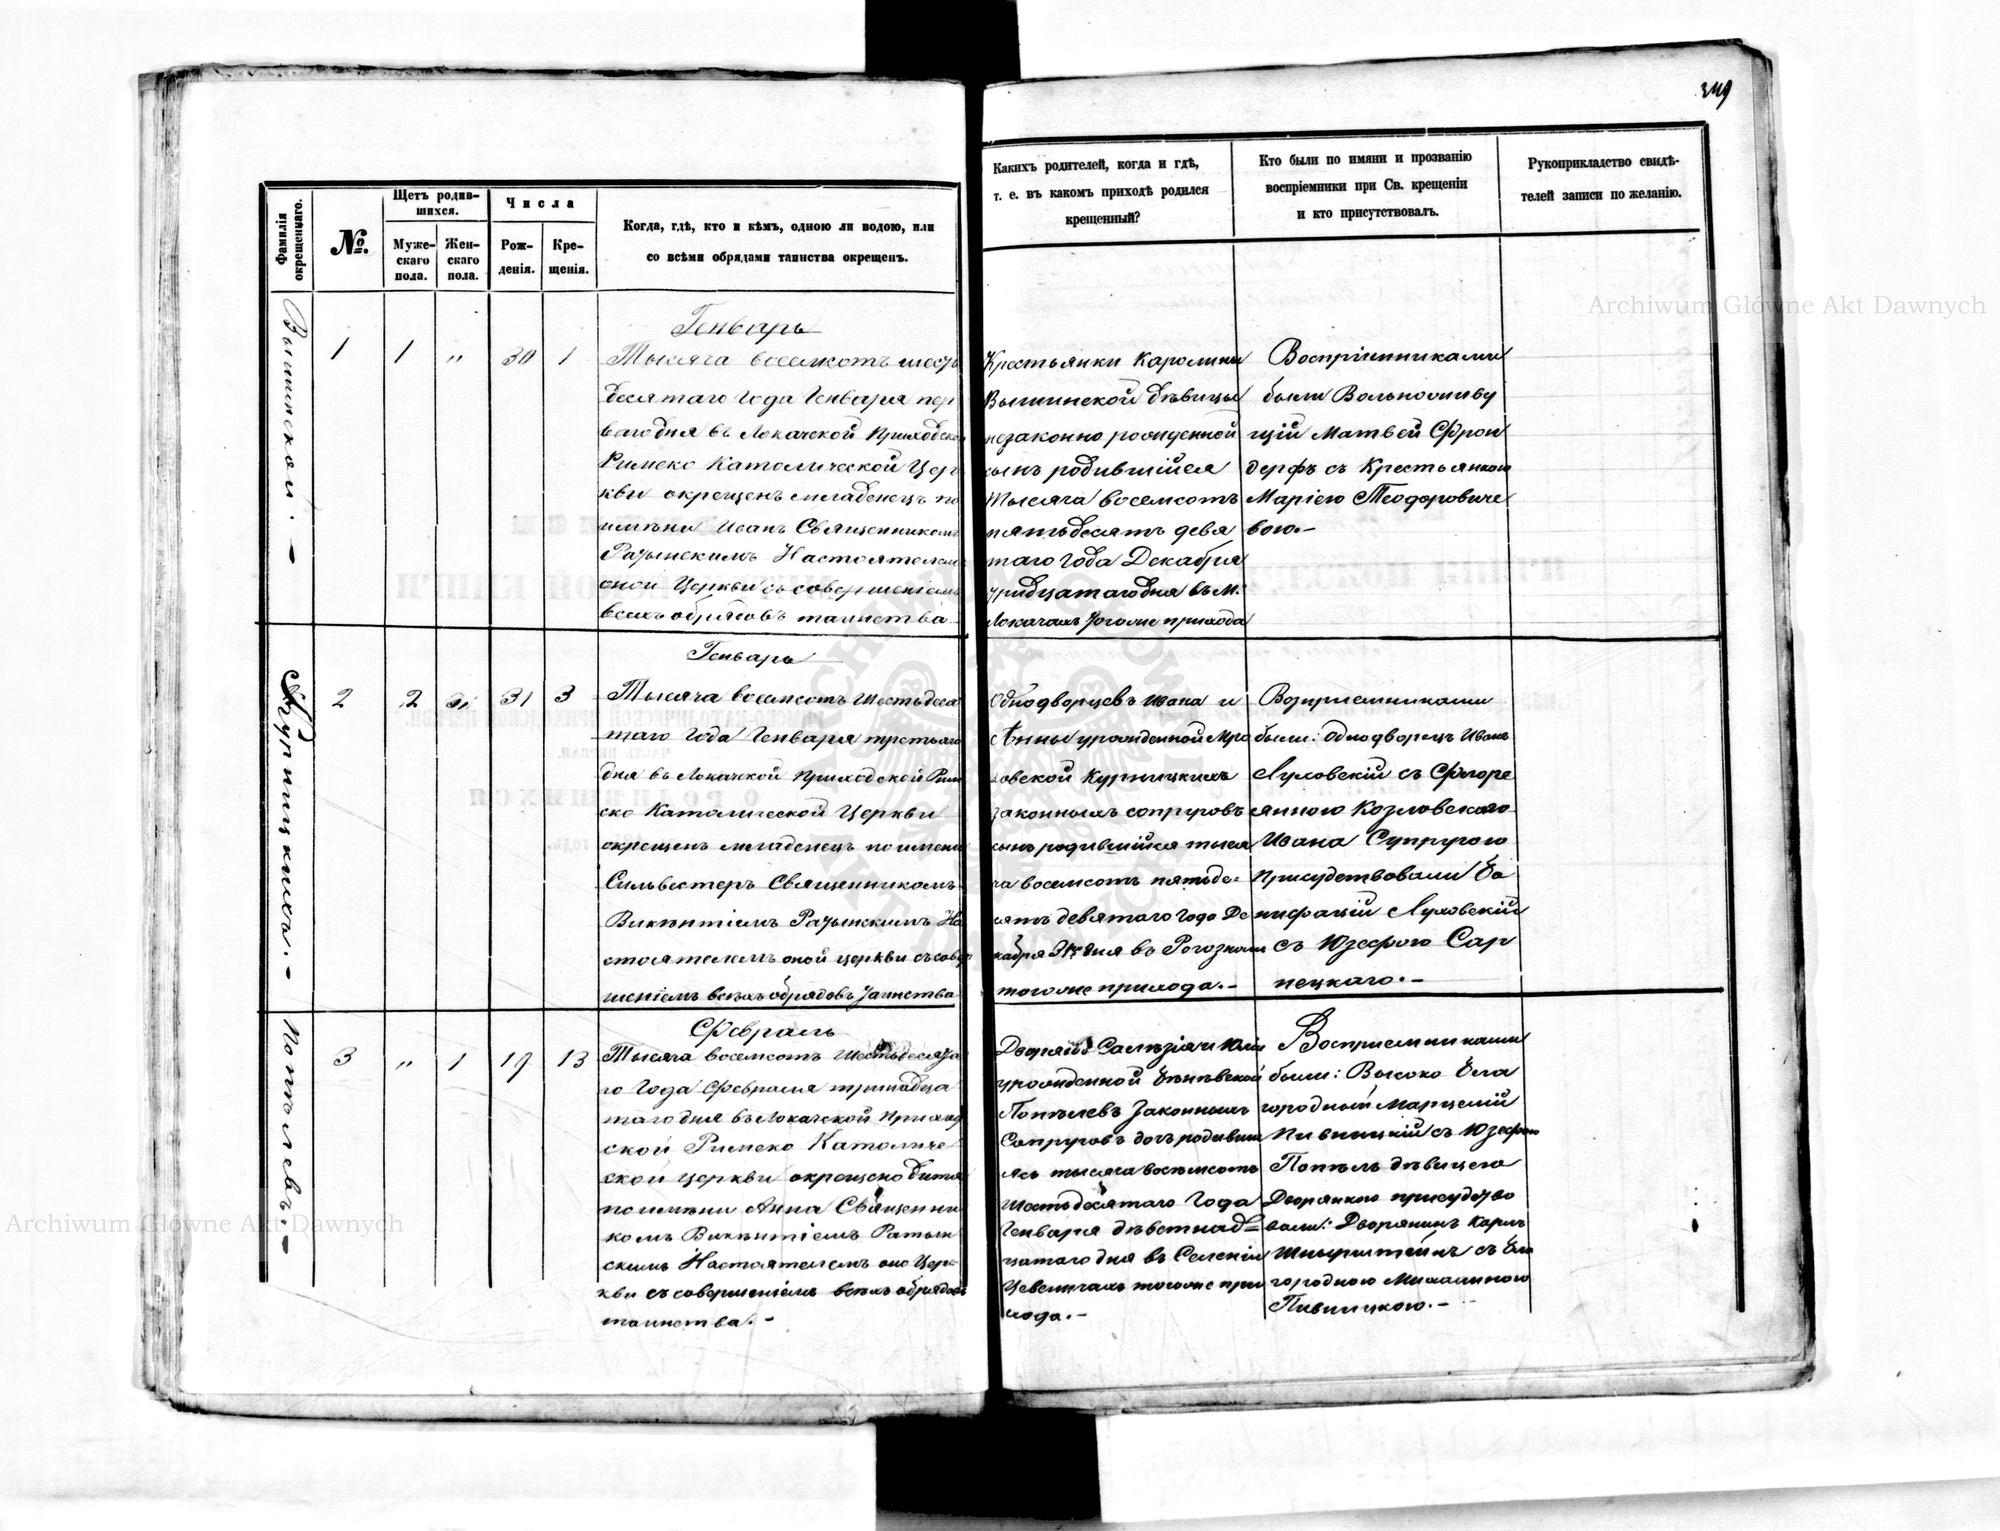 349
Фамилія
окрещеннаго.
№.
Щетъ родив-
шихся.
Муже-
скаго
пола.
Жен-
скаго
пола.
Числа
Рож-
денія.
Кре-
щенія.
Когда, гдѣ, кто и кѣмъ, одною ли водою, или
со всѣми обрядами таинства окрещенъ.
Какихъ родителей, когда и гдѣ,
т. е. въ какомъ приходѣ родился
крещенный?
Кто были по имяни и прозванію
воспріемники при Св. крещеніи
и кто присутствовалъ.
Рукоприкладство свидѣ-
телей записи по желанію.
Archiwum Główne Akt Dawnych
Вышинской. -
1 1 " 30 1
Генварь
Тысяча восемсотъ шест
десятаго года Генваря пер
ваго дня въ Локачской Приходской
Римско Католической Цер
кви окрещенъ младенецъ по
имѣни Иванъ Священникомъ
Рачинскимъ Настоятелем
оной Церкви съ совершеніемъ
всехъ обрядовъ таинства
Крестьянки Каролины
Вышинской дѣвицы
незаконно рожденной
сынъ родившійся
тысяча восемсотъ
пятьдесятъ девя
таго года Декабря
тридцатаго дня въ М.
Локачахъ тогоже прихода
Воспріемниками
были Вольноживу
щій Матвей Фрон
дерфъ съ Крестьянкою
Маріею Теодоровиче
вою.-
Курницкихъ. -
2 2 " 31 3
Генварь
Тысяча восемсотъ Шестьдеся
таго года Генваря третьяго
дня въ Локачской Приходской Рим
ско Католической Церкви
окрещенъ младенецъ по имени
Сильвестеръ Священникомъ
Викѣнтіемъ Рачинскимъ На
стоятелемъ оной церкви съ совер
шеніемъ всѣхъ обрядовъ Таинства
Однодворцевъ Ивана и
Анны урожденной Мро
зовской Курницкихъ
законныхъ супруговъ
сынъ родившійся тыся
ча восемсотъ пятьде-
сятъ девятаго года Де
кабря 31 дня въ Рогозномъ
тогоже прихода. -
Возприемниками
были: Однодворецъ Иванъ
Луловскій съ Флоре
янною Козловскаго
Ивана Супругою
присудствовали Бо
нифацій Луловскій
съ Юзефою Сар
нецкаго. -
Попѣлевъ. -
3 " 1 19 13
Февраль
Тысяча восемсотъ Шестьдесята
го года Февраля тринадца
таго дня въ Локачской Приход
ской Римско Католиче
ской церкви окрещено дитя
по имѣни Анна Священни
комъ Викѣнтіемъ Рачин
скимъ Настоятелемъ оно Цер-
кви съ совершеніемъ всѣхъ обрядовъ
таинства. -
Дворянъ Салѣзія и Юліи
урожденной
Попѣлевъ Законныхъ
Супруговъ дочь родивша
ясь тысяча восѣмсотъ
шестьдесятаго года
Генваря дѣветнад=
цатаго дня въ Селеніи
тогоже при
хода. -
Восприемниками
были: Высоко Бла
городный Марцелій
Пивницкій съ Юзефою
Попѣль дѣвицею
Дворянкою присудство
вали: Дворянинъ Карлъ
съ Бла
городною Михалиною
Пивницкою. -
Archiwum Główne Akt Dawnych